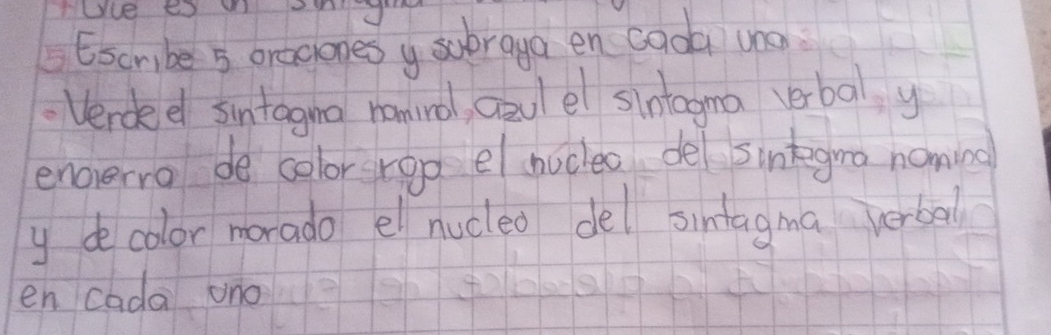 Que es un
5 Escribe 5 oraciones y subraya en cada una
Verde el sintagma nominal, azul el sintagma verbal, y
encierra de color rojo el núcleo del sintagma nominal
y de color morado el nucleo del sintagma verbal
en cada uno